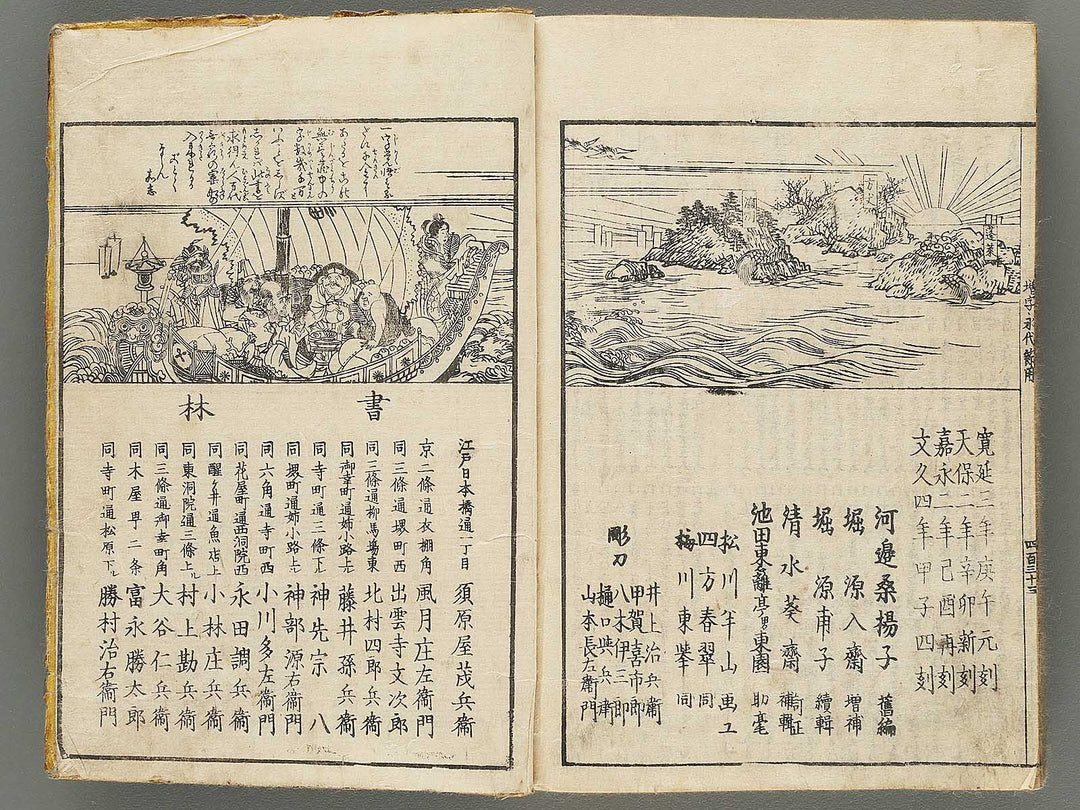 方丈
瀛州
蓬莱
寛延三年庚午元刻
天保二年辛卯新刻
嘉永二年己酉再刻
文久四年甲子四刻
河邉桑揚子 舊編
堀源入齋 増補
堀源甫子 續輯
清水葵齋 補輯
池田東籬亭 男東園 助毫
松川半山 画工
四方春翠 同
梅川東挙 同
彫刀
井上治兵衞
甲賀喜市郎
八木伊三郎
樋口與兵衞
山本長左衞門
永代節用
四百三十三
書林
江戸日本橋通一丁目 須原屋茂兵衞
京二條通衣棚角 風月庄左衞門
同三條通堺町西 出雲寺文次郎
同三條通柳馬場東 北村四郎兵衞
同御幸町通姉小路上 藤井孫兵衞
同寺町通三條下 神先宗八
同堺町通姉小路上 神部源右衞門
同六角通寺町西 小川多左衞門
同花屋町通西洞院西 永田調兵衞
同醒ヶ井通魚店上 小林庄兵衞
同東洞院通三條上ル 村上勘兵衞
同三條通御幸町角 大谷仁兵衞
同木屋町二条 富永勝太郎
同寺町通松原下ル 勝村治右衞門